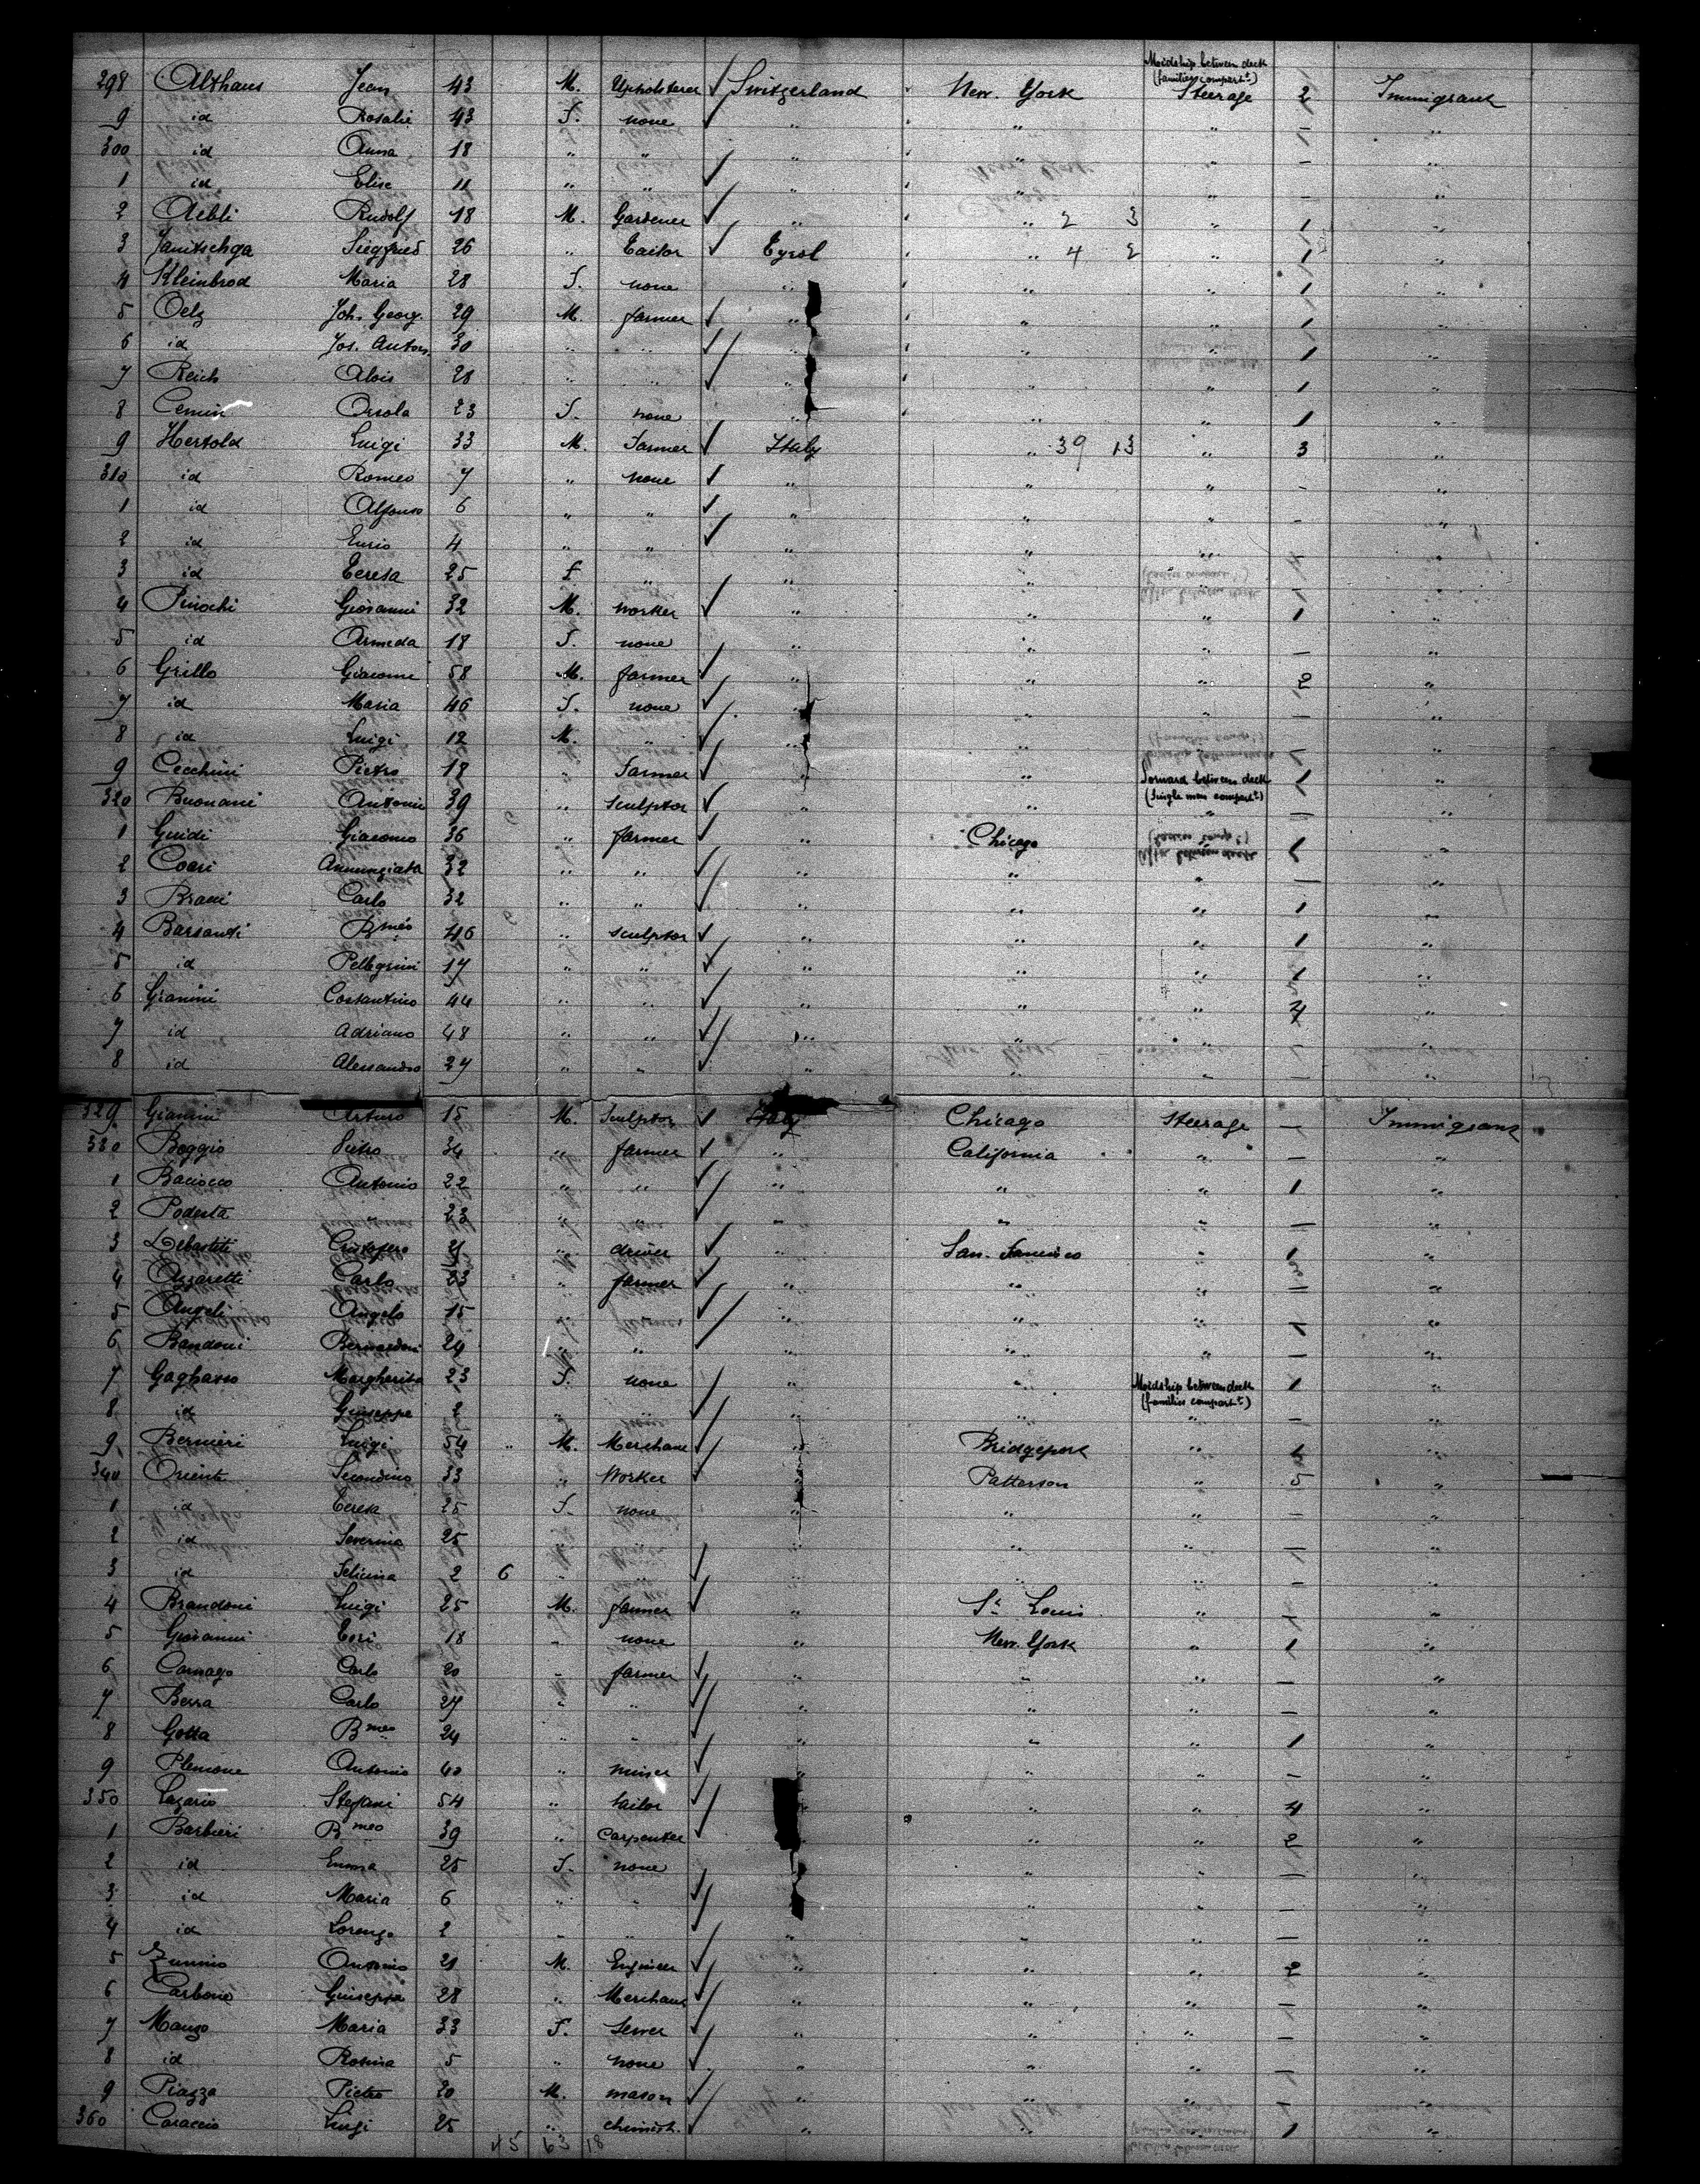 Midship between deck
(families compart^t.)
298 Althaus Jean 43 M. Upholsterer Switzerland New. York Steerage 2 Immigrant
9 id Rosalie 43 F. none " " " — "
300 id Anna 18 " " " " " — "
1 id Elise 11 " " " " " — "
2 Aebli Rudolf 18 M. Gardener " " 2 3 " 1 "
3 Janitschga Siegfried 26 " Tailor Tyrol " 4 2 " 1 "
4 Kleinbrod Maria 28 F. none " " " 1 "
5 Oelz Joh. Georg. 29 M. farmer " " " 1 "
6 id Jos. Anton. 30 " " " " 1 "
7 Reich Alois 28 " " " " " 1 "
8 Cemin Orsola 23 F. none " " " 1 "
9 Hertold Luigi 33 M. Farmer Italy " 39 13 " 3 "
310 id Romeo 7 " none " " " - "
1 id Alfonso 6 " " " " " - "
2 id Enrio 4 " " " " " "
3 id Teresa 25 f. " " " " "
4 Pinochi Giovanni 32 M. worker " " " 1 "
5 id Armeda 18 F. none " " " — "
6 Grillo Giacomi 58 M. farmer " " " 2 "
7 id Maria 46 F. none " " " — "
8 id Luigi 12 M. " " " — "
9 Cecchini Pietro 18 " Farmer " " Forward between deck 1 "
(Single men compart^t.)
320 Buonani Antonio 39 " sculptor " " " — "
1 Guidi Giacomo 36 " farmer " Chicago 1 "
2 Coari Annunziata 32 " " " " " — "
3 Braci Carlo 32 " " " " " 1 "
4 Barsanti B^meo 46 " sculptor " " " 1 "
5 id Pellegrini 17 " " " " " 1 "
6 Gianini Costantino 44 " " " " " 4 "
7 id Adriano 48 " " " " " "
8 id Alessandro 27 " " " " " — "
329 Gianini Arturo 15 M. Sculptor Italy Chicago Steerage — Immigrant
330 Boggio Pietro 34 " farmer " California " — "
1 Baciocco Antonio 22 " " " " " 1 "
2 Podesta " 23 " " " " " — "
3 Debastiti Cristofero 21 " driver " San. Francisco " 1 "
4 Azzaretti Carlo 23 " farmer " " " — "
5 Angeli Angelo 15 " " " " " "
6 Bandoni Bernardoni 24 " " " " " — "
7 Gagharso Margherita 23 F. none " " Midship between deck 1 "
(families compart^t.)
8 id Giuseppe 2 " " " " " — "
9 Bernieri Luigi 54 " M. Merchant " Bridgeport " "
340 Oriente Secondino 33 " Worker " Patterson " 5 "
1 id Teresa 25 F. none " " " — "
2 id Severina 25 " " " " — "
3 id Felicina 2 6 " " " " " — "
4 Brandoni Luigi 25 M. farmer " S^t. Louis " "
5 Giovanni Tori 18 " none " New. York " 1 "
6 Carnago Carlo 20 " farmer " " " — "
7 Berra Carlo 27 " " " " " — "
8 Gotta B^meo 24 " " " " " 1 "
9 Plemone Antonio 40 " miner " " " — "
350 Lazario Stefani 54 " tailor " " 4 "
1 Barbieri B^meo 39 " Carpenter " " 2 "
2 id Emma 25 F. none " " " — "
3 id Maria 6 " " " " — "
4 id Lorenzo 2 " " " " " — "
5 Zunino Antonio 21 M. Engineer " " " 2 "
6 Carbone Giuseppe 28 " Merchant " " " — "
7 Manzo Maria 33 F. Sewer " " " — "
8 id Rosina 5 " none " " " — "
9 Piazza Pietro 20 M. mason " " " — "
360 Caraccio Luigi 25 " chemist. " " " 1 "
45 63 18